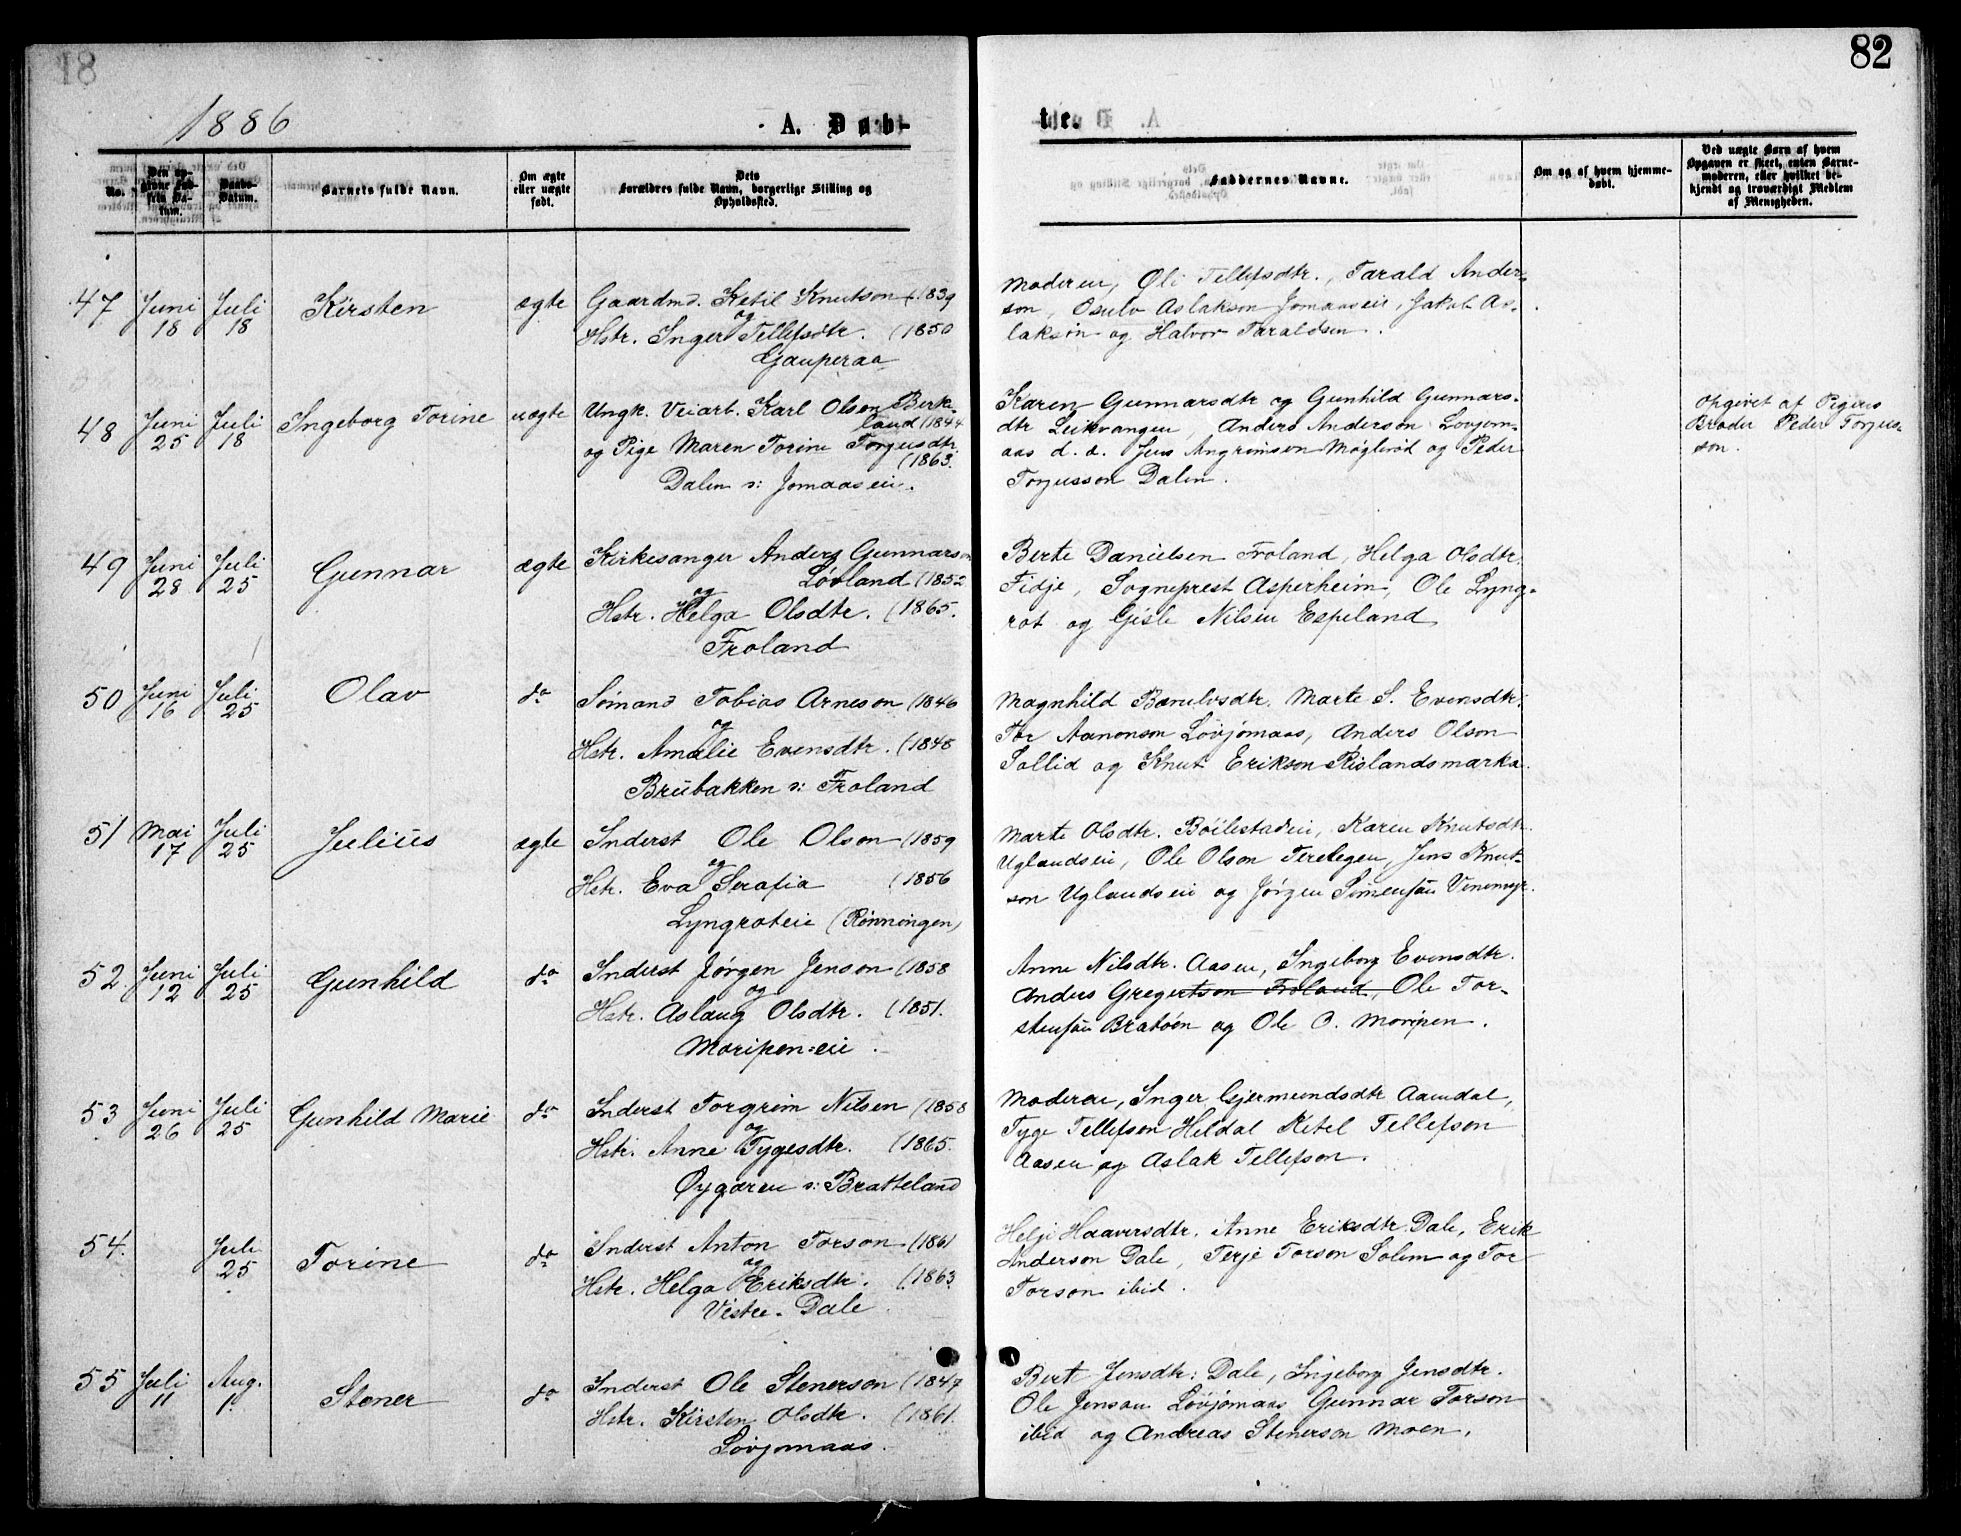 82
1886
A. Døb-
te.
No.
Den opgivne Fødsels Datum.
Daabs-Datum.
Barnets fulde Navn.
Om ægte eller uægte født.
Dets Forældres fulde Navn, borgerlige Stilling og Opholdssted.
Faddernes Navne.
Om og af hvem hjemmedøbt.
Ved uægte Børn af hvem Opgaven er skeet, enten Barnemoderen, eller hvilket bekjendt og troværdigt Medlem af Menigheden.
47 Juni 18 Juli 18 Kirsten ægte Gaardmd. Ketil Knutson (1839
og
Hstr. Inger Tellefsdtr. (1850
Gauperaa
Moderen, Oli Tellefsdtr., Tarald Ander-
son, Osulv Aslakson Jomaaseie, Jakob As-
lakson og Halvor Taraldsen.
48 Juni 25 Juli 18 Ingeborg Torine uægte Ungk. Veiarb. Karl Olsen Birke-
land (1844
og Pige Maren Torine Torjusdtr.
(1863.
Dalen s: Jomaaseie.
Karen Gunnarsdtr og Gunhild Gunnars-
dtr Leikvangen, Anders Anderson Lovjom-
aas d. æ. Jens Angrimsen Møglestø og Peder
Torjusson Dalen.
Opgivet af Pigens
Broder Peder Torjus-
son.
49 Juni 28 Juli 25 Gunnar ægte Kirkesanger Anders Gunnarson
Løvland (1852
og
Hstr. Helga Olsdtr. (1865.
Froland
Berte Danielsen Froland, Helga Olsdtr.
Fidje, Sogneprest Asperheim, Ole Lyng-
rot og Gisle Nilsen Espeland
50 Juni 16 Juli 25 Olav do Sømand Tobias Arneson (1846
og
Hstr. Amalie Evensdtr. (1848
Brubakken s: Froland
Magnhild Barulvsdtr. Marte S. Evensdtr.
Tor Aanonson Løvjomaas, Anders Olson
Sollid og Knut Erikson Rislandsmarka.
51 Mai 17 Juli 25 Julius ægte Inderst Ole Olson (1859
og
Hstr. Eva Serafia (1856
Lyngroteie (Rønningen)
Marte Olsdtr. Bøilestadeie, Karen Knutsdtr.
Uglandseie, Ole Olson Tveitegen, Jens Knut-
son Uglandseie og Jørgen Simensøn
52 Juni 12 Juli 25 Gunhild do Inderst Jørgen Jenson (1858
og
Hstr. Aslaug Olsdtr. (1851.
Moripen=eie.
Anne Nilsdtr. Aasen, Ingeborg Evensdtr.
Anders Gregertson Froland, Ole Tor-
stensøn Bratøen og Ole O. Moripen.
53 Juni 26 Juli 25 Gunhild Marie do Inderst Torgrim Nilsen (1858
og
Hstr. Anne Tygesdtr. (1865.
Øygaren s: Bratteland
Moderen, Inger Gjermundsdtr Aamdal,
Tyge Tellefson Heldal Ketel Tellefson
Aasen og Aslak Tellefson.
54. Juli 25 Torine do Inderst Anton Torson (1861
og
Hstr. Helga Eriksdtr. (1863
Vestre-Dale
Helje Haaversdtr. Anne Eriksdtr. Dale, Erik
Anderson Dale, Terje Torson Solem og Tor
Torson ibid.
55 Juli 11 Aug. 1. Stener do Inderst Ole Stenerson (1847
Hstr. Kirsten Olsdtr. (1861.
Løvjomaas.
Bert Jensdtr. Dale, Ingeborg Jensdtr.
Ole Jenson Løvjomaas Gunnar Torson
ibid og Andreas Stenerson Moen.